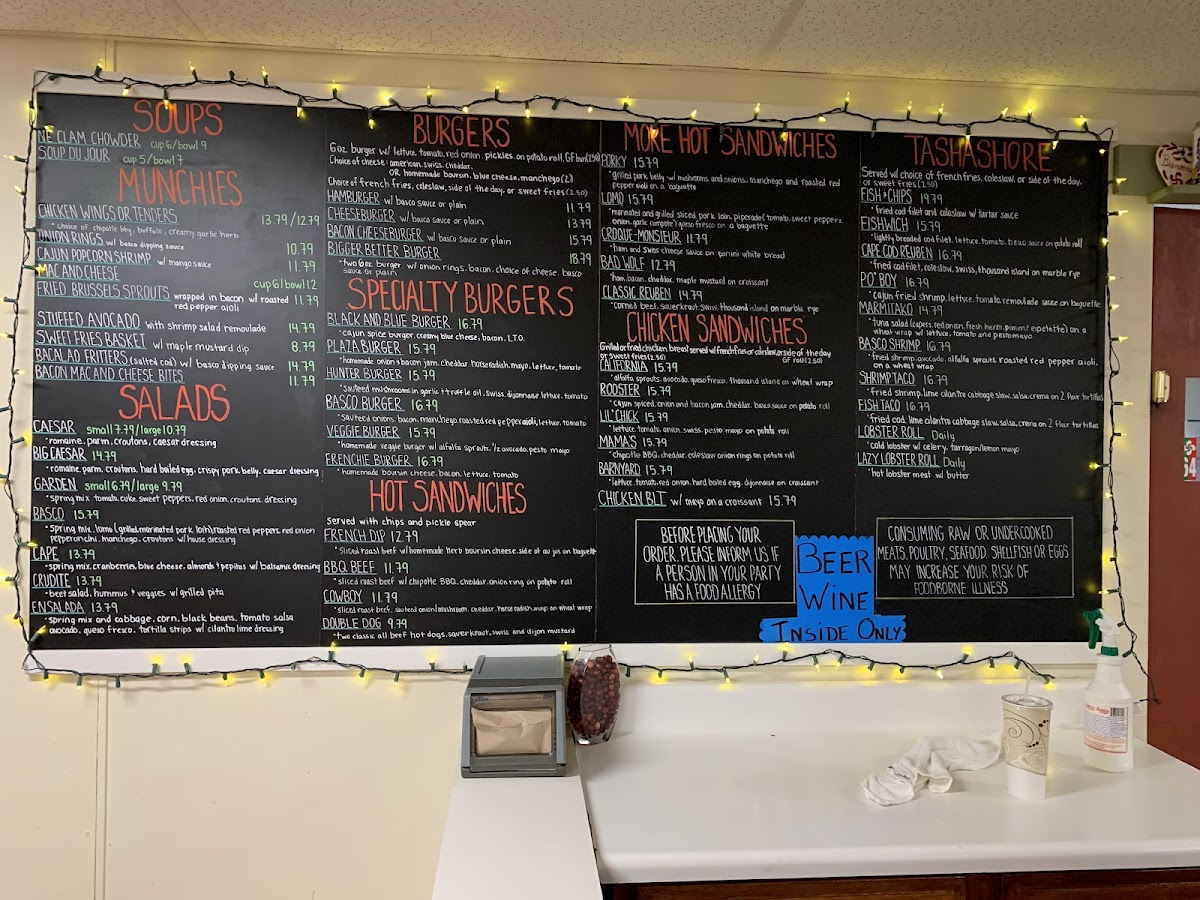 SOUPS
NE CLAM CHOWDER cup 6/bowl 9
SOUP DU JOUR cup 5/bowl 7
MUNCHIES
CHICKEN WINGS OR TENDERS 13.79/12.79
*choice of chipotle bbq, buffalo, creamy garlic herb
ONION RINGS w/ basco dipping sauce 10.79
CAJUN POPCORN SHRIMP w/ mango sauce 11.79
MAC AND CHEESE cup 6/bowl 12
FRIED BRUSSELS SPROUTS wrapped in bacon w/ roasted 11.79
red pepper aioli
STUFFED AVOCADO with shrimp salad remoulade 14.79
SWEET FRIES BASKET w/ maple mustard dip 8.79
BACALAO FRITTERS (salted cod) w/ basco dipping sauce 14.79
BACON MAC AND CHEESE BITES 11.79
SALADS
CAESAR small 7.79/large 10.79
*romaine, parm, croutons, caesar dressing
BIG CAESAR 14.79
*romaine, parm, croutons, hard boiled egg, crispy pork belly, caesar dressing
GARDEN small 6.79/large 9.79
*spring mix, tomato, cuke, sweet peppers, red onion, croutons, dressing
BASCO 15.79
*spring mix, lomo (grilled, marinated pork loin), roasted red peppers, red onion
pepperoncini, manchego, croutons w/ house dressing
CAPE 13.79
*spring mix, cranberries, blue cheese, almonds + pepitas w/ balsamic dressing
CRUDITE 13.79
*beet salad, hummus + veggies w/ grilled pita
ENSALADA 13.79
*spring mix and cabbage, corn, black beans, tomato salsa
avocado, queso fresco, tortilla strips w/ cilantro lime dressing
BURGERS
6oz burger w/ lettuce, tomato, red onion, pickles, on potato roll, GF bun (2.50)
Choice of cheese: american, swiss, cheddar,
OR homemade boursin, blue cheese, manchego (2)
Choice of french fries, coleslaw, side of the day, or sweet fries (2.50)
HAMBURGER w/ basco sauce or plain 11.79
CHEESEBURGER w/ basco sauce or plain 13.79
BACON CHEESEBURGER w/ basco sauce or plain 15.79
BIGGER BETTER BURGER 18.79
*two 6oz burger w/ onion rings, bacon, choice of cheese, basco
sauce or plain
SPECIALTY BURGERS
BLACK AND BLUE BURGER 16.79
*cajun spice burger, creamy blue cheese, bacon, L.T.O.
PLAZA BURGER 15.79
*homemade onion & bacon jam, cheddar, horseradish, mayo, lettuce, tomato
HUNTER BURGER 15.79
*sautéed mushrooms in garlic + truffle oil, swiss, dijonnaise lettuce, tomato
BASCO BURGER 16.79
*sautéed onions, bacon, manchego, roasted red pepper aioli, lettuce, tomato
VEGGIE BURGER 15.79
*homemade veggie burger w/ alfalfa sprouts, 1/2 avocado, pesto mayo
FRENCHIE BURGER 16.79
*homemade boursin cheese, bacon, lettuce, tomato
HOT SANDWICHES
served with chips and pickle spear
FRENCH DIP 12.79
*sliced roast beef w/ homemade herb boursin cheese, side of au jus on baguette
BBQ BEEF 11.79
*sliced roast beef w/ chipotle BBQ, cheddar, onion ring on potato roll
COWBOY 11.79
*sliced roast beef, sauteed onion/mushroom, cheddar, horseradish, mayo on wheat wrap
DOUBLE DOG 9.79
*two classic all beef hot dogs, sauerkraut, swiss and dijon mustard
MORE HOT SANDWICHES
PORKY 15.79
*grilled pork belly w/ mushrooms and onions, manchego and roasted red
pepper aioli on a baguette
LOMO 15.79
*marinated and grilled sliced pork loin, piperade (tomato, sweet peppers,
onion, garlic compote) queso fresco on a baguette
CROQUE-MONSIEUR 11.79
*ham and swiss cheese sauce on panini white bread
BAD WOLF 12.79
*ham, bacon, cheddar, maple mustard on croissant
CLASSIC REUBEN 14.79
*corned beef, sauerkraut, swiss, thousand island on marble rye
CHICKEN SANDWICHES
Grilled or fried chicken breast served w/ french fries or coleslaw or side of the day
or sweet fries (2.50) GF roll (2.50)
CALIFORNIA 15.79
*alfalfa sprouts, avocado, queso fresco, thousand island on wheat wrap
ROOSTER 15.79
*cajun spiced, onion and bacon jam, cheddar, basco sauce on potato roll
LIL' CHICK 15.79
*lettuce, tomato, onion, swiss, pesto mayo on potato roll
MAMAS 15.79
*chipotle BBQ, cheddar, coleslaw, onion rings on potato roll
BARNYARD 15.79
*lettuce, tomato, red onion, hard boiled egg, dijonnaise on croissant
CHICKEN BLT w/ mayo on a croissant 15.79
BEFORE PLACING YOUR
ORDER, PLEASE INFORM US IF
A PERSON IN YOUR PARTY
HAS A FOOD ALLERGY
BEER
WINE
INSIDE ONLY
TASHASHORE
Served w/ choice of french fries, coleslaw, or side of the day,
or sweet fries (2.50)
FISH & CHIPS 19.79
*fried cod filet and coleslaw w/ tartar sauce
FISHWICH 15.79
*lightly breaded cod filet, lettuce, tomato, basco sauce on potato roll
CAPE COD REUBEN 16.79
*fried cod filet, coleslaw, swiss, thousand island on marble rye
PO' BOY 16.79
*cajun fried shrimp, lettuce, tomato, remoulade sauce on baguette
MARMITAKO 14.79
*tuna salad (capers, red onion, fresh herbs, piment espelette) on a
wheat wrap w/ lettuce, tomato and pesto mayo
BASCO SHRIMP 16.79
*fried shrimp, avocado, alfalfa sprouts, roasted red pepper aioli,
on a wheat wrap
SHRIMP TACO 16.79
*fried shrimp, lime cilantro cabbage slaw, salsa, crema on 2 flour tortillas
FISH TACO 16.79
*fried cod, lime cilantro cabbage slaw, salsa, crema on 2 flour tortillas
LOBSTER ROLL Daily
*cold lobster w/ celery, tarragon/lemon mayo
LAZY LOBSTER ROLL Daily
*hot lobster meat w/ butter
CONSUMING RAW OR UNDERCOOKED
MEATS, POULTRY, SEAFOOD, SHELLFISH OR EGGS
MAY INCREASE YOUR RISK OF
FOODBORNE ILLNESS